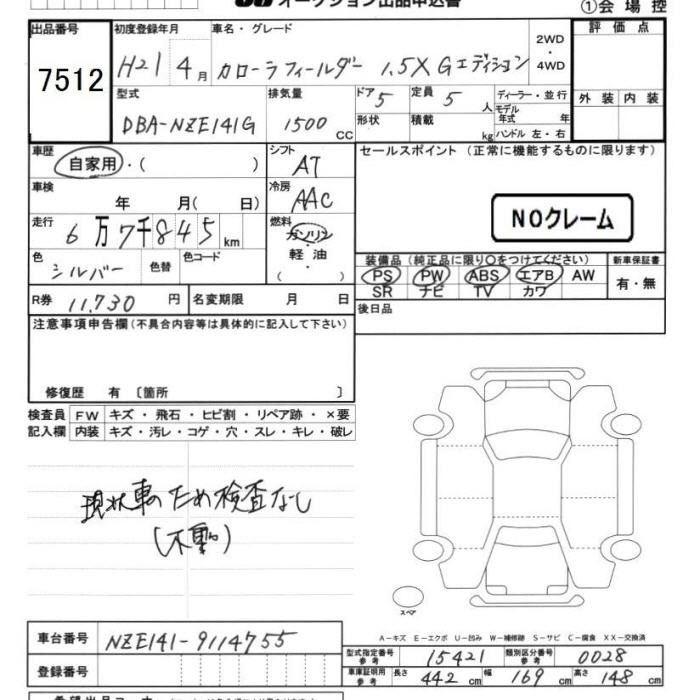 オークション出品申込書 ①会場控
出品番号 初度登録年月 車名・グレード 2WD・4WD 評価点
7512 H21 4月 カローラフィールダー 1.5X Gエディション
型式 排気量 ドア 5 定員 5人 ディーラー・並行 外装 内装
DBA-NZE141G 1500cc 形状 積載 kg モデル年式 年 ハンドル 左・右
車歴 自家用・( ) シフト AT セールスポイント (正常に機能するものに限ります)
車検 年 月( 日) 冷房 AAC
NOクレーム
走行 6万7千845km 燃料 ガソリン・軽油( )
色 シルバー 色替 色コード 装備品(純正品に限り○をつけてください) 新車保証書
PS PW ABS エアB AW 有・無
SR ナビ TV カワ
R券 11,730円 名変期限 月 日 後日品
注意事項申告欄(不具合内容等は具体的に記入して下さい)
修復歴 有 〔箇所 〕
検査員 FW キズ・飛石・ヒビ割・リペア跡・×要
記入欄 内装 キズ・汚レ・コゲ・穴・スレ・キレ・破レ
現状車のため検査なし
(不動)
スペア
車台番号 NZE141-9114755
A-キズ E-エクボ U-凹み W-補修跡 S-サビ C-腐食 XX-交換済
型式指定番号 参考 15421 類別区分番号 参考 0028
登録番号 車庫証明用 参考 長さ 442cm 幅 169cm 高さ 148cm